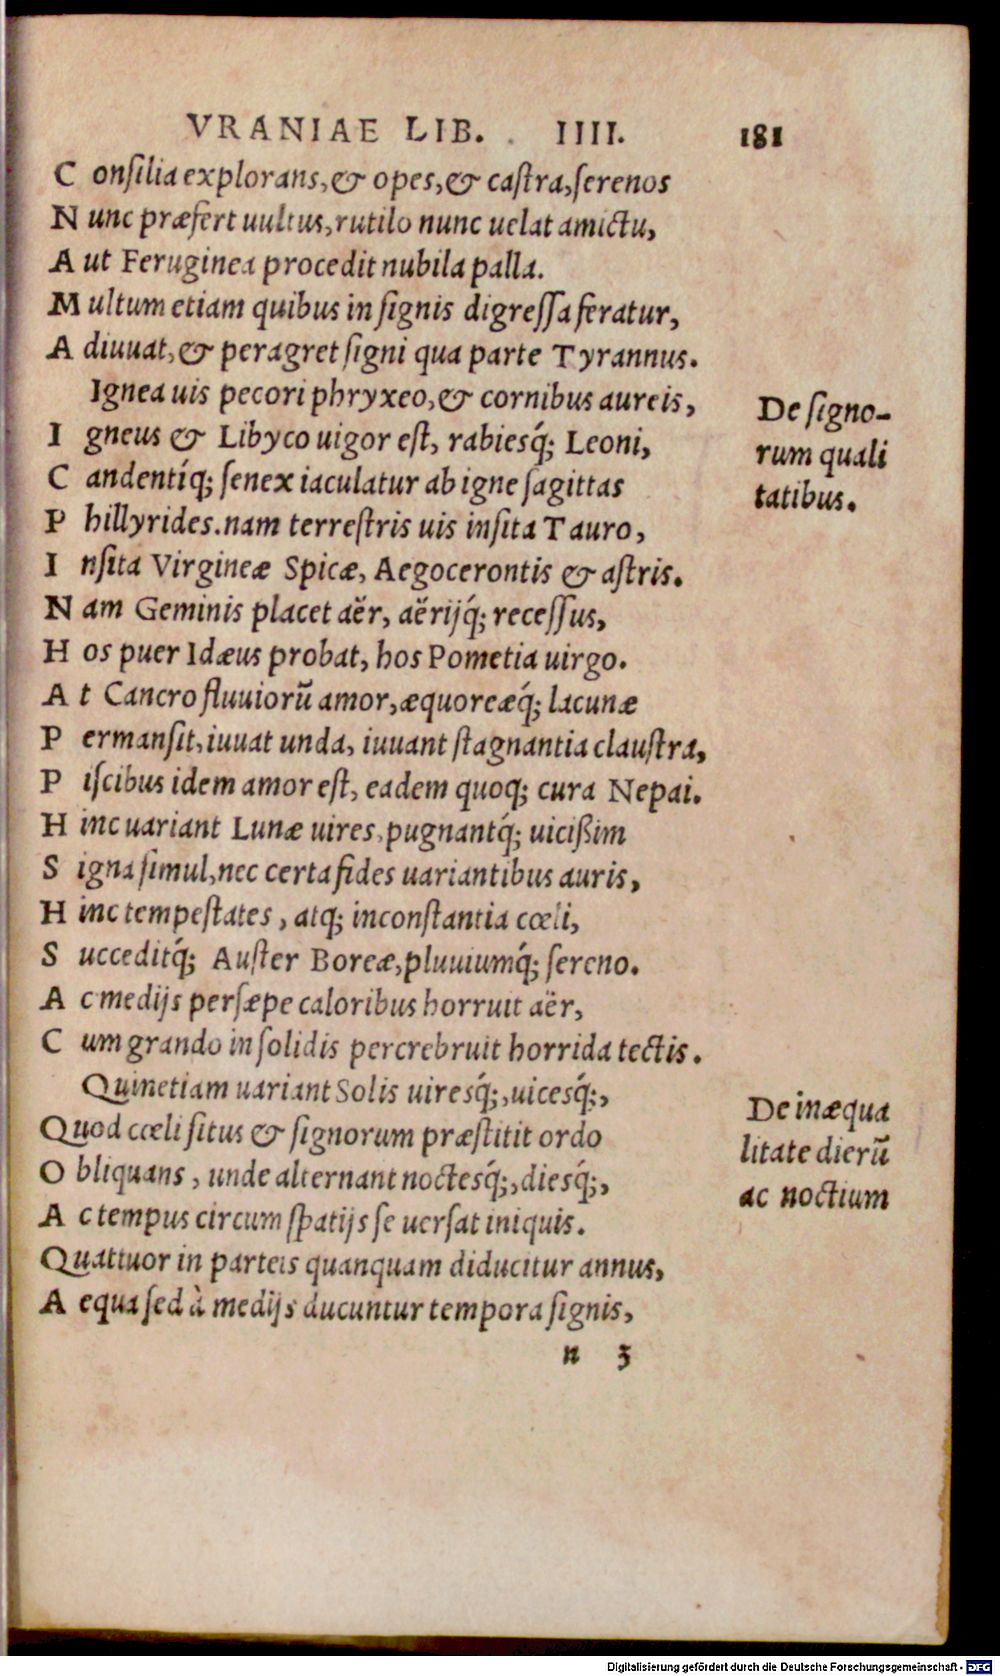 VRANIAE LIB. IIII. 181
C onſilia explorans, & opes, & caſtra, ſerenos
N unc præfert uultus, rutilo nunc uelat amictu,
A ut Feruginea procedit nubila palla.
M ultum etiam quibus in ſignis digreſſa feratur,
A diuuat, & peragret ſigni qua parte Tyrannus.
Ignea uis pecori phryxeo, & cornibus aureis,
I gneus & Libyco uigor eſt, rabiesq́; Leoni,
C andentíq; ſenex iaculatur ab igne ſagittas
P hillyrides. nam terreſtris uis inſita Tauro,
I nſita Virgineæ Spicæ, Aegocerontis & aſtris.
N am Geminis placet aër, aërijq́; receſſus,
H os puer Idæus probat, hos Pometia uirgo.
A t Cancro fluuiorū amor, æquoreæq́; lacunæ
P ermanſit, iuuat unda, iuuant ſtagnantia clauſtra,
P iſcibus idem amor eſt, eadem quoq; cura Nepai.
H inc uariant Lunæ uires, pugnantq́; uicißim
S igna ſimul, nec certa fides uariantibus auris,
H inc tempeſtates, atq; inconſtantia cœli,
S ucceditq́; Auſter Boreæ, pluuiumq́; ſereno.
A c medijs perſæpe caloribus horruit aër,
C um grando in ſolidis percrebruit horrida tectis.
Quinetiam uariant Solis uiresq́;, uicesq́;,
Quod cœli ſitus & ſignorum præſtitit ordo
O bliquans, unde alternant noctesq́;, diesq́;,
A c tempus circum ſpatijs ſe uerſat iniquis.
Quattuor in parteis quanquam diducitur annus,
A equa ſed à medijs ducuntur tempora ſignis,
n 3
De ſigno-
rum quali
tatibus.
De inæqua
litate dierū
ac noctium
Digitalisierung gefördert durch die Deutsche Forschungsgemeinschaft - DFG